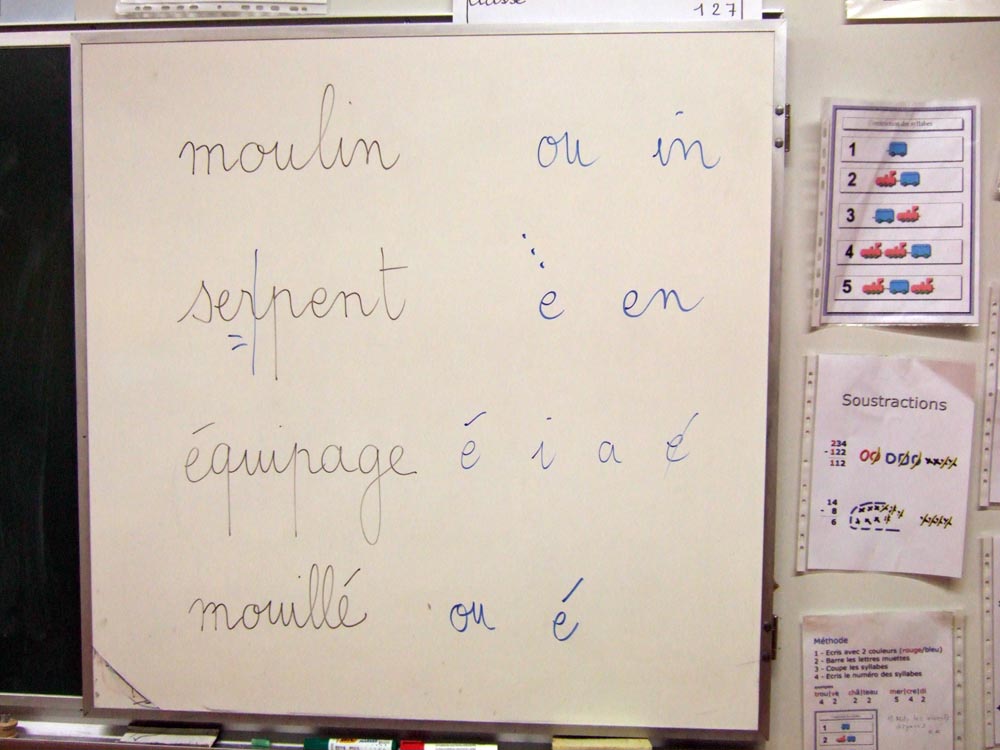 127
moulin ou in
serpent e en
équipage é i a é
mouillé ou é
Construction des syllabes
1
2
3
4
5
Soustractions
234
- 122
112
14
- 8
6
Méthode
1 - Ecris avec 2 couleurs (rouge/bleu)
2 - Barre les lettres muettes
3 - Coupe les syllabes
4 - Ecris le numéro des syllabes
exemples
trou|ve châ|teau mer|cre|di
4 2 2 2 5 4 2
1
2